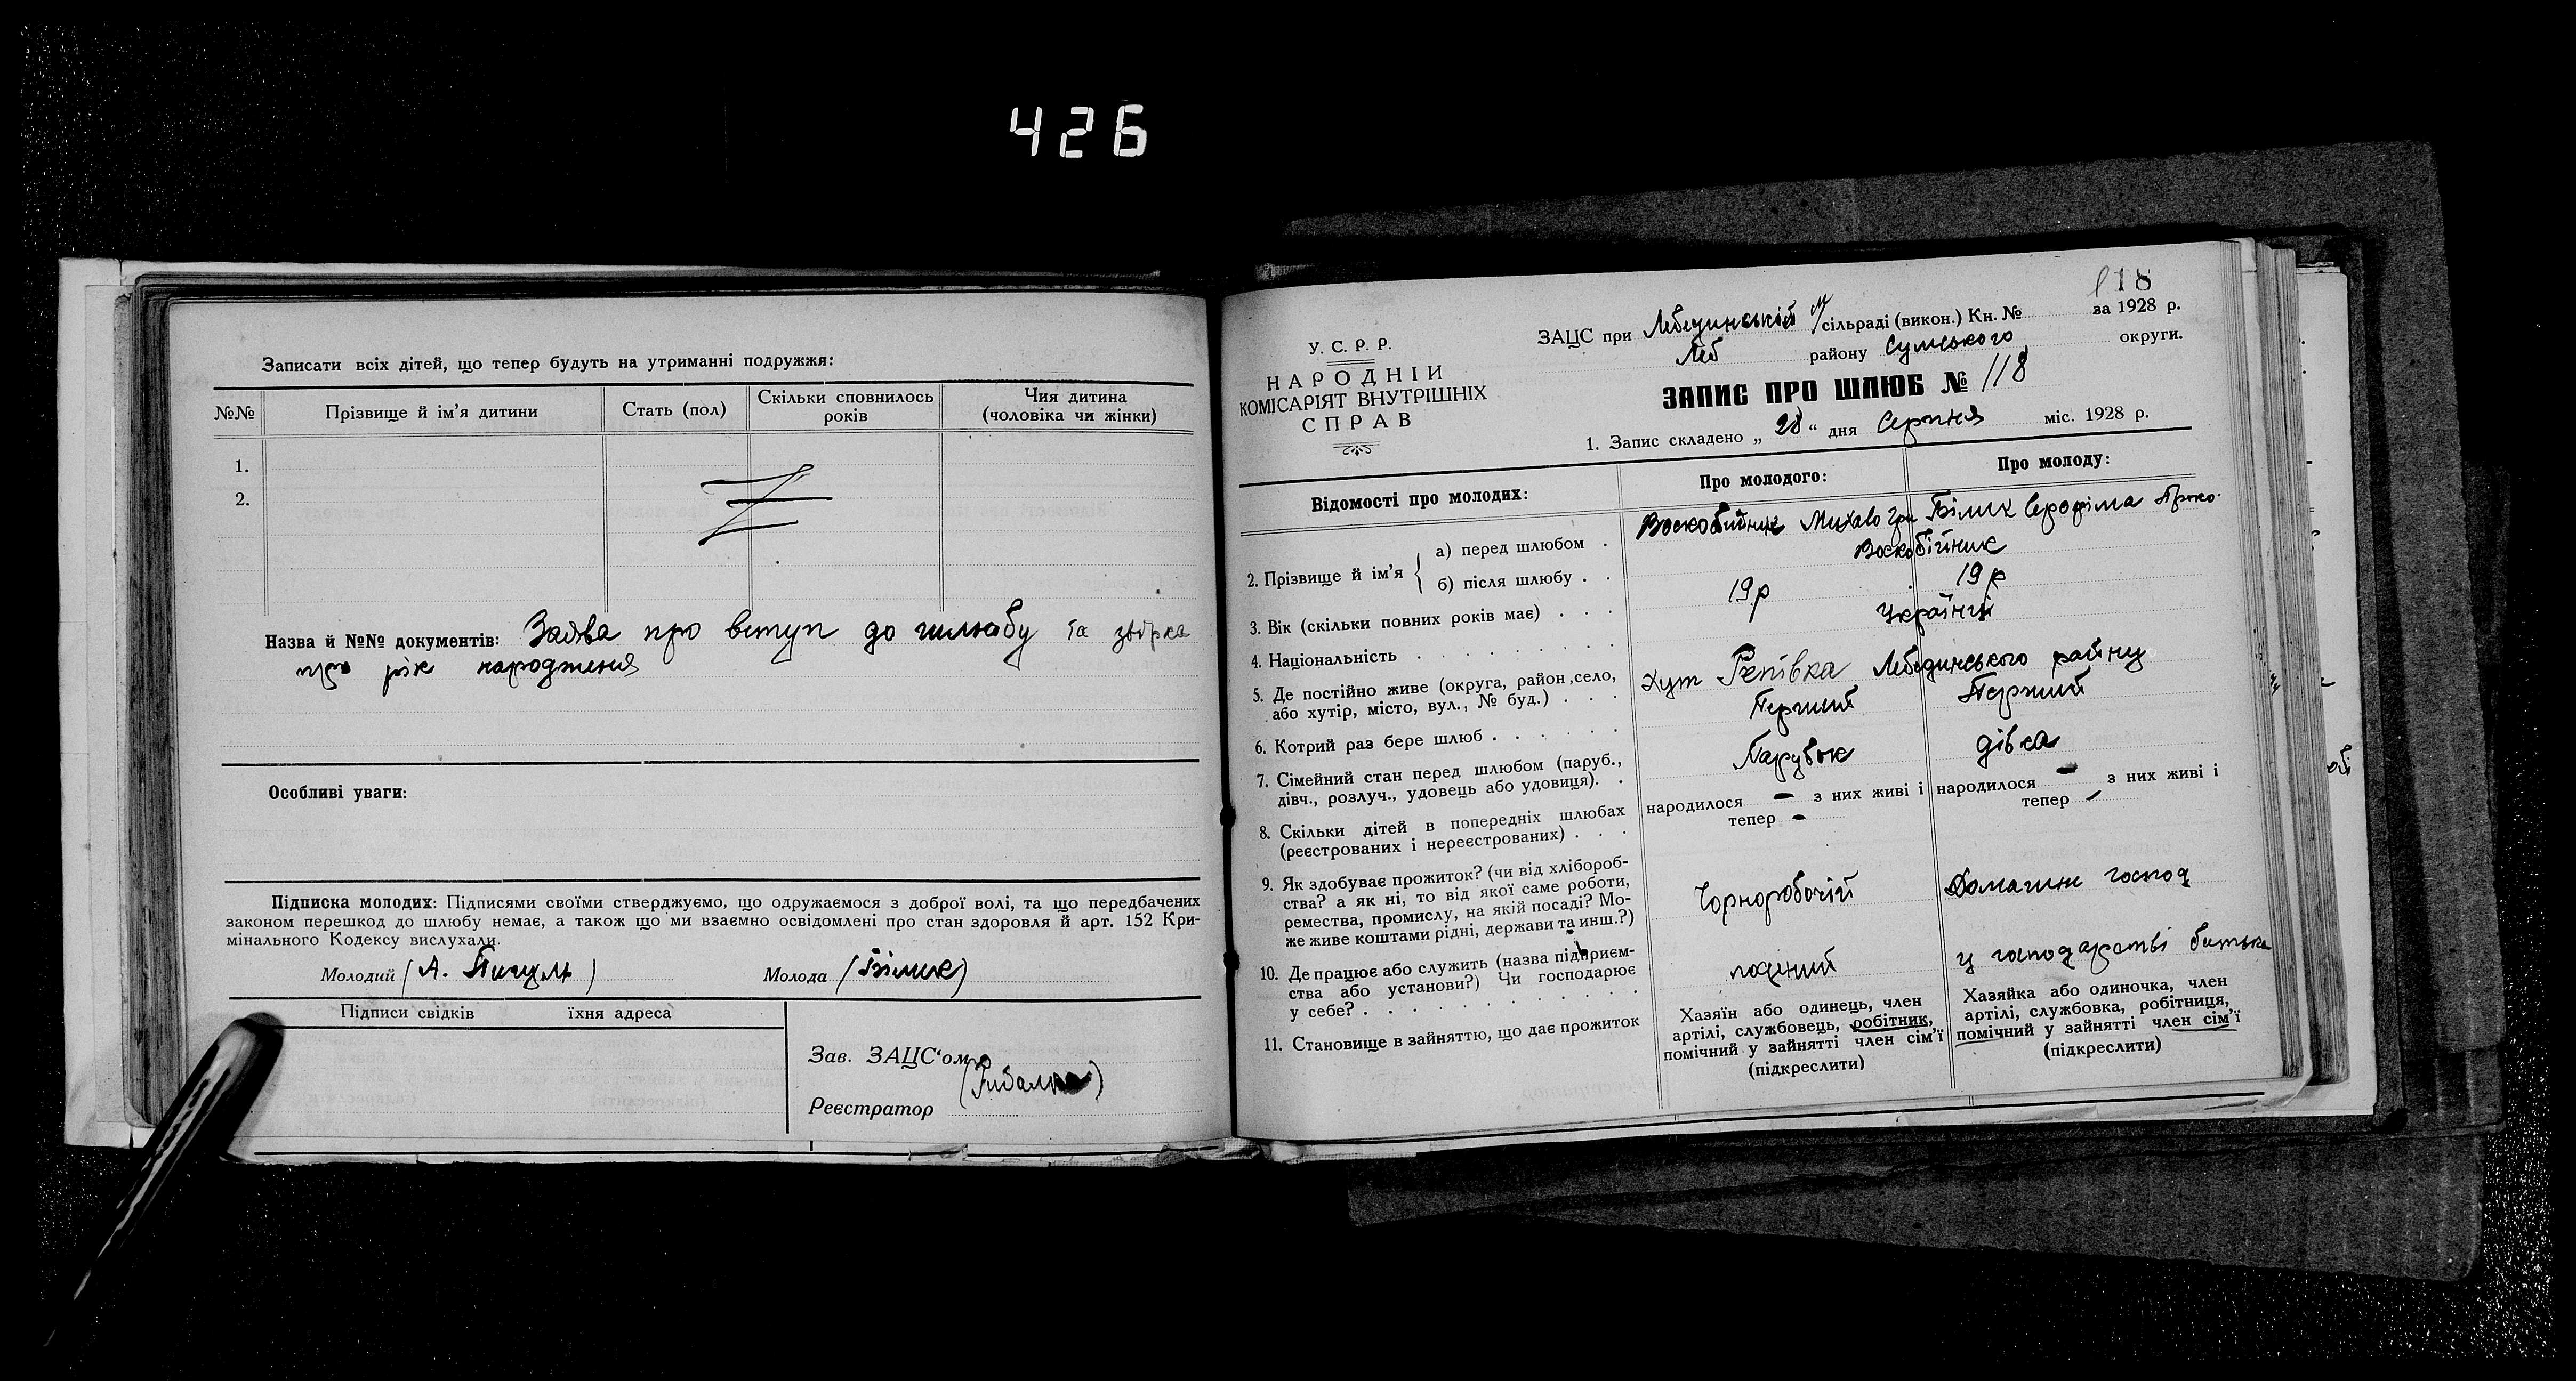 426
Записати всіх дітей, що тепер будуть на утриманні подружжя:
№№ Прізвище й ім'я дитини Стать (пол) Скільки сповнилось років Чия дитина (чоловіка чи жінки)
1.
2.
Назва й №№ документів: Заява про вступ до шлюбу та звірка
про рік народження
Особливі уваги:
Підписка молодих: Підписями своїми стверджуємо, що одружаємося з доброї волі, та що передбачених
законом перешкод до шлюбу немає, а також що ми взаємно освідомлені про стан здоровля й арт. 152 Кри-
мінального Кодексу вислухали.
Молодий (А. ) Молода (Білик)
Підписи свідків їхня адреса
Зав. ЗАЦС'ом
(Рибалка)
Реєстратор
118
У. С. Р. Р.
НАРОДНІЙ
КОМІСАРІЯТ ВНУТРІШНІХ
СПРАВ
ЗАЦС при Лебединській м/сільраді (викон.) Кн. № за 1928 р.
Леб району Сумського округи.
ЗАПИС ПРО ШЛЮБ № 118
1. Запис складено „ 28 “ дня Серпня міс. 1928 р.
Відомості про молодих: Про молодого: Про молоду:
2. Прізвище й ім'я
а) перед шлюбом . Воскобийник Михайло Гри Білик Серофіма Проко-
б) після шлюбу . . Воскобійник
3. Вік (скільки повних років має) . . . 19 р 19 р
4. Національність . . . Українці
5. Де постійно живе (округа, район, село,
або хутір, місто, вул., № буд.) . . . хут Репівка Лебединського району
6. Котрий раз бере шлюб . . . . . . Перший Перший
7. Сімейний стан перед шлюбом (паруб.,
дівч., розлуч., удовець або удовиця). . Парубок дівка
8. Скільки дітей в попередніх шлюбах
(реєстрованих і нереєстрованих) . . .
народилося – з них живі і
тепер –
народилося – з них живі і
тепер –
9. Як здобуває прожиток? (чи від хлібороб-
ства? а як ні, то від якої саме роботи,
ремества, промислу, на якій посаді? Мо-
же живе коштами рідні, держави та инш.?)
Чорноробочій
Домашнє господ
10. Де працює або служить (назва підприєм-
ства або установи?) Чи господарює
у себе? . . . . . . . . . .
поденний
у господарстві батька
11. Становище в зайняттю, що дає прожиток
Хазяїн або одинець, член
артілі, службовець, робітник,
помічний у зайнятті член сім'ї
(підкреслити)
Хазяйка або одиночка, член
артілі, службовка, робітниця,
помічний у зайнятті член сім'ї
(підкреслити)